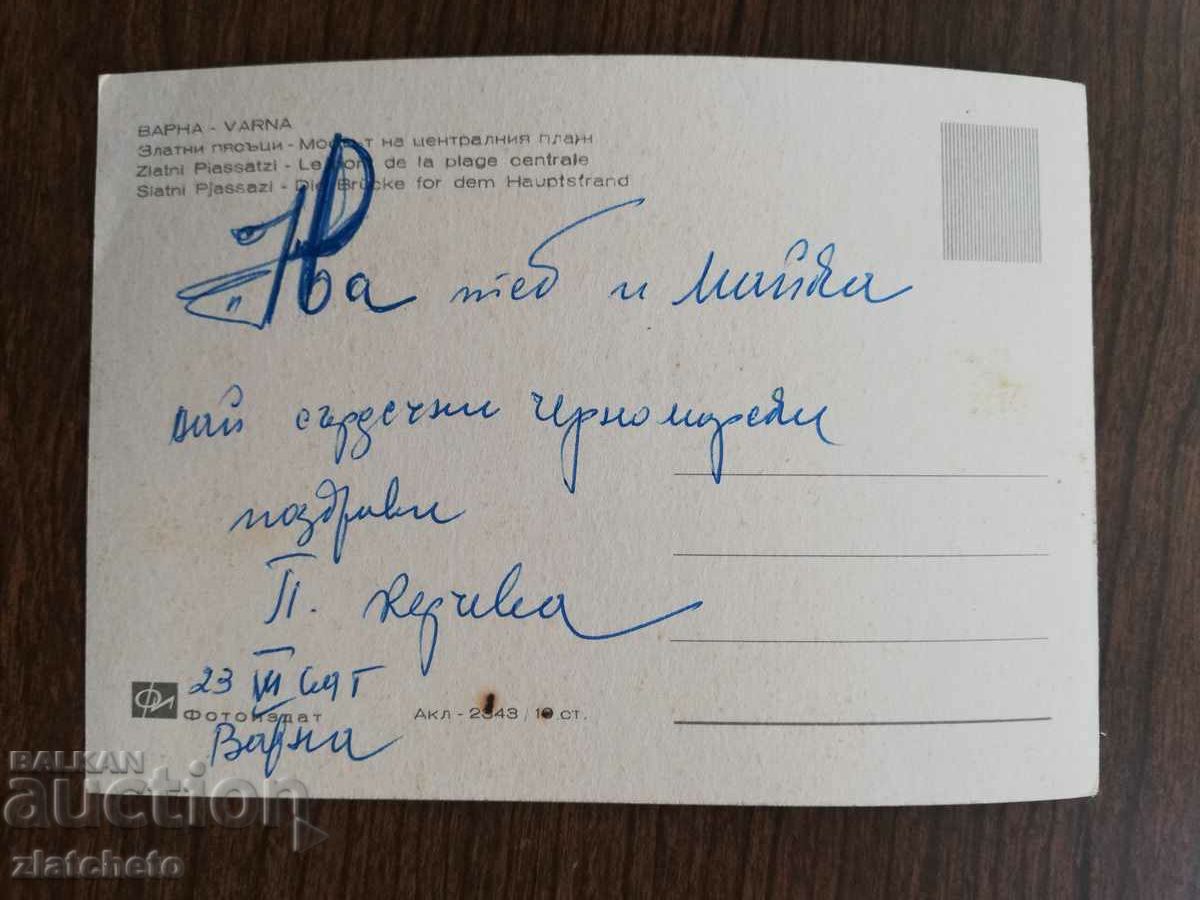 ВАРНА - VARNA
Златни пясъци - Мостът на централния плаж
Zlatni Piassatzi - Le pont de la plage centrale
Slatni Pjassazi - Die Brücke for dem Hauptstrand
На теб и Майка
най сърдечни черноморски
поздрави
П.
23 VIII
Варна
Фотоиздат
Акл - 2343 / 10 ст.
BALKAN
auction
zlatcheto